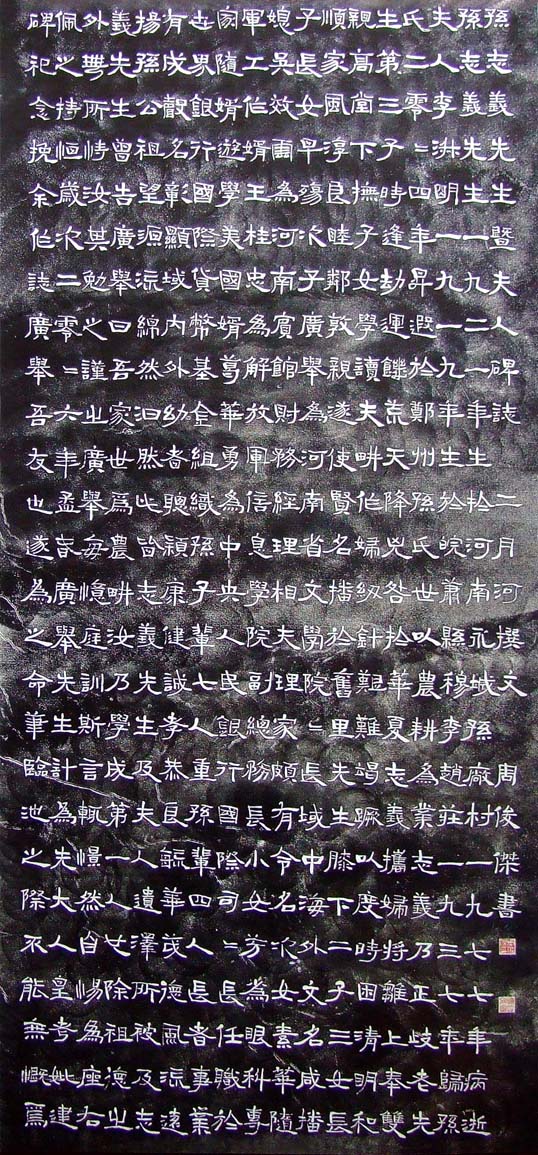 孫志義先生暨夫人碑誌 二月河撰文 周俊傑書
孫志義先生一九二一年生於河南永城孫廠村一九七七年病逝
夫人李洙明一九一九年生於皖蕭縣穆李趙莊一九三七年歸孫
氏二零二四年昇遐於鄭州孫氏世以農耕為業志義乃正岐老先
生第三子時逢劫運饑荒天降兇咎於華夏志義攜婦將雛上奉雙
親高堂下撫子女學讀夫畊作婦紉針艱難竭蹶以度時困清明和
順家風淳良睦鄰敦親遂使賢名播於舊里先生膝下二子三女長
子長女早殤次子廣舉為河南省文學院〻長域中海外文名咸播
媳吳效爾為河南賓館財務經理相夫理家頗有令名次女素華隨
軍工作婿王桂忠為解放軍信息學院副總務長小女芬為眼科專
家隨婿遊學美國婿葛華勇為中央人民銀行國際司〻長任職於
世界銀行國際貨幣基金組織孫子輩七人重孫輩四人長者事業
有成聲名彰顯域內外幼者聰穎康健誠孝恭良毓華茂德風流遠
揚孫公祖望源流綿然汩然此皆志義先生及夫人遺澤所被及志
義先生曾告廣舉曰吾家世為農畊汝乃學成第一人也除祖德之
外無所恃汝其勉之謹之廣舉每憶庭訓斯言輒憬然自惕為座右
佩之持恒歲次二零〻六年孟春廣舉先生計為先大人皇考妣建
碑祀念挽余作誌廣舉吾友也遂為之命筆臨池之際不能無慨焉